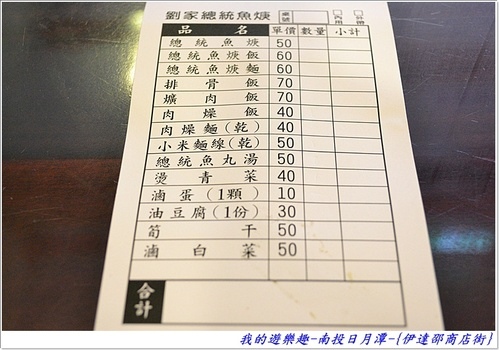 劉家總統魚焿 桌號 □內用 □外帶
品名 單價 數量 小計
總統魚焿 50
總統魚焿飯 60
總統魚焿麵 60
排骨飯 70
爌肉飯 70
肉燥飯 40
肉燥麵(乾) 40
小米麵線(乾) 50
總統魚丸湯 50
燙青菜 40
滷蛋(1顆) 10
油豆腐(1份) 30
筍干 50
滷白菜 50
合計
我的遊樂趣-南投日月潭-{伊達邵商店街}